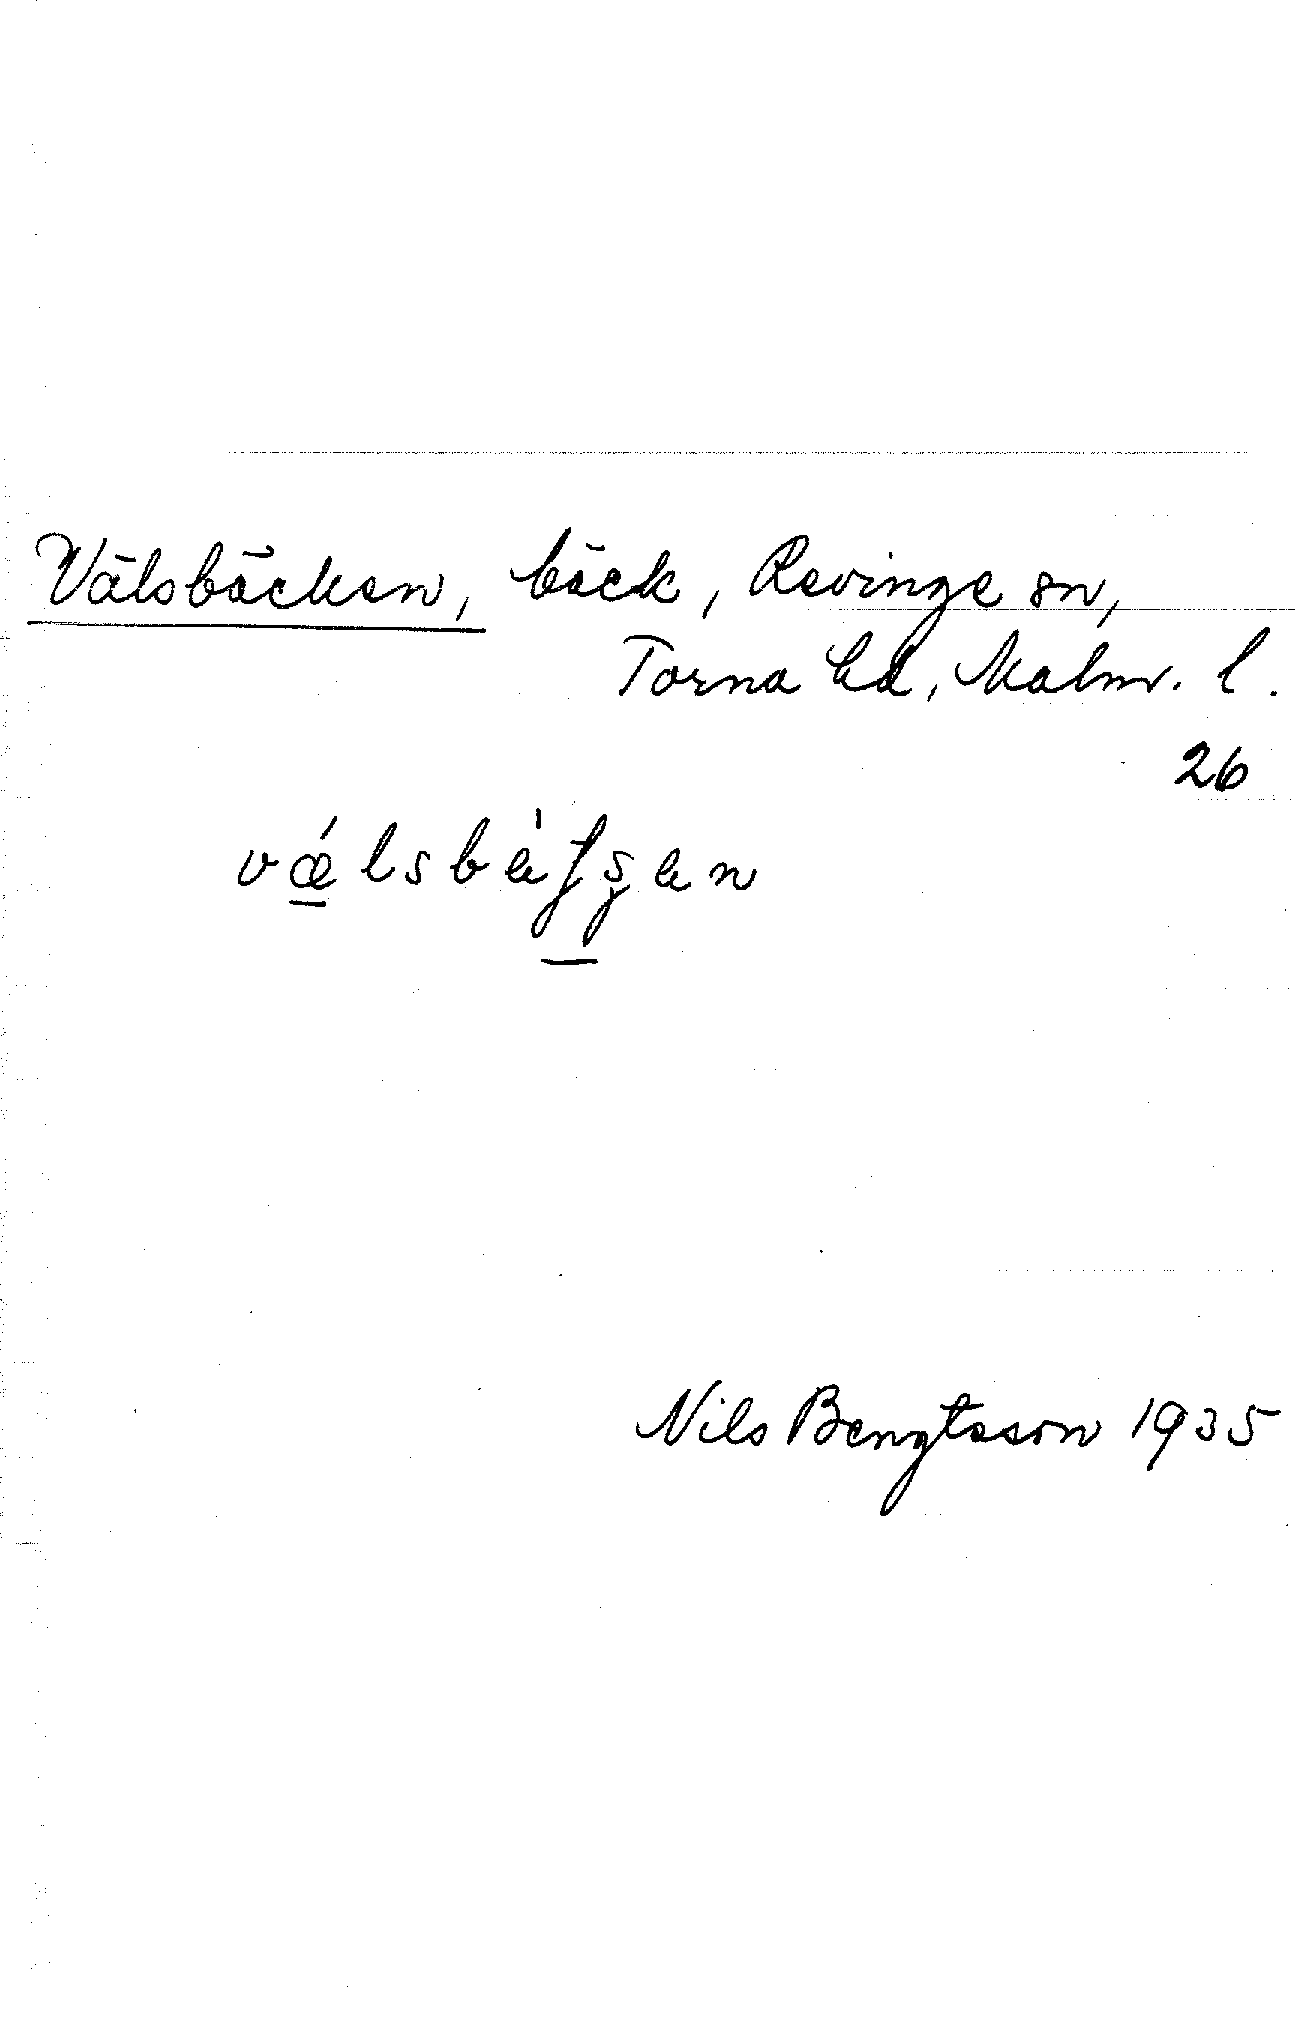 Välsbäcken, bäck, Revinge sn,
Torna hd, Malm. l.
26
Nils Bengtsson 1935